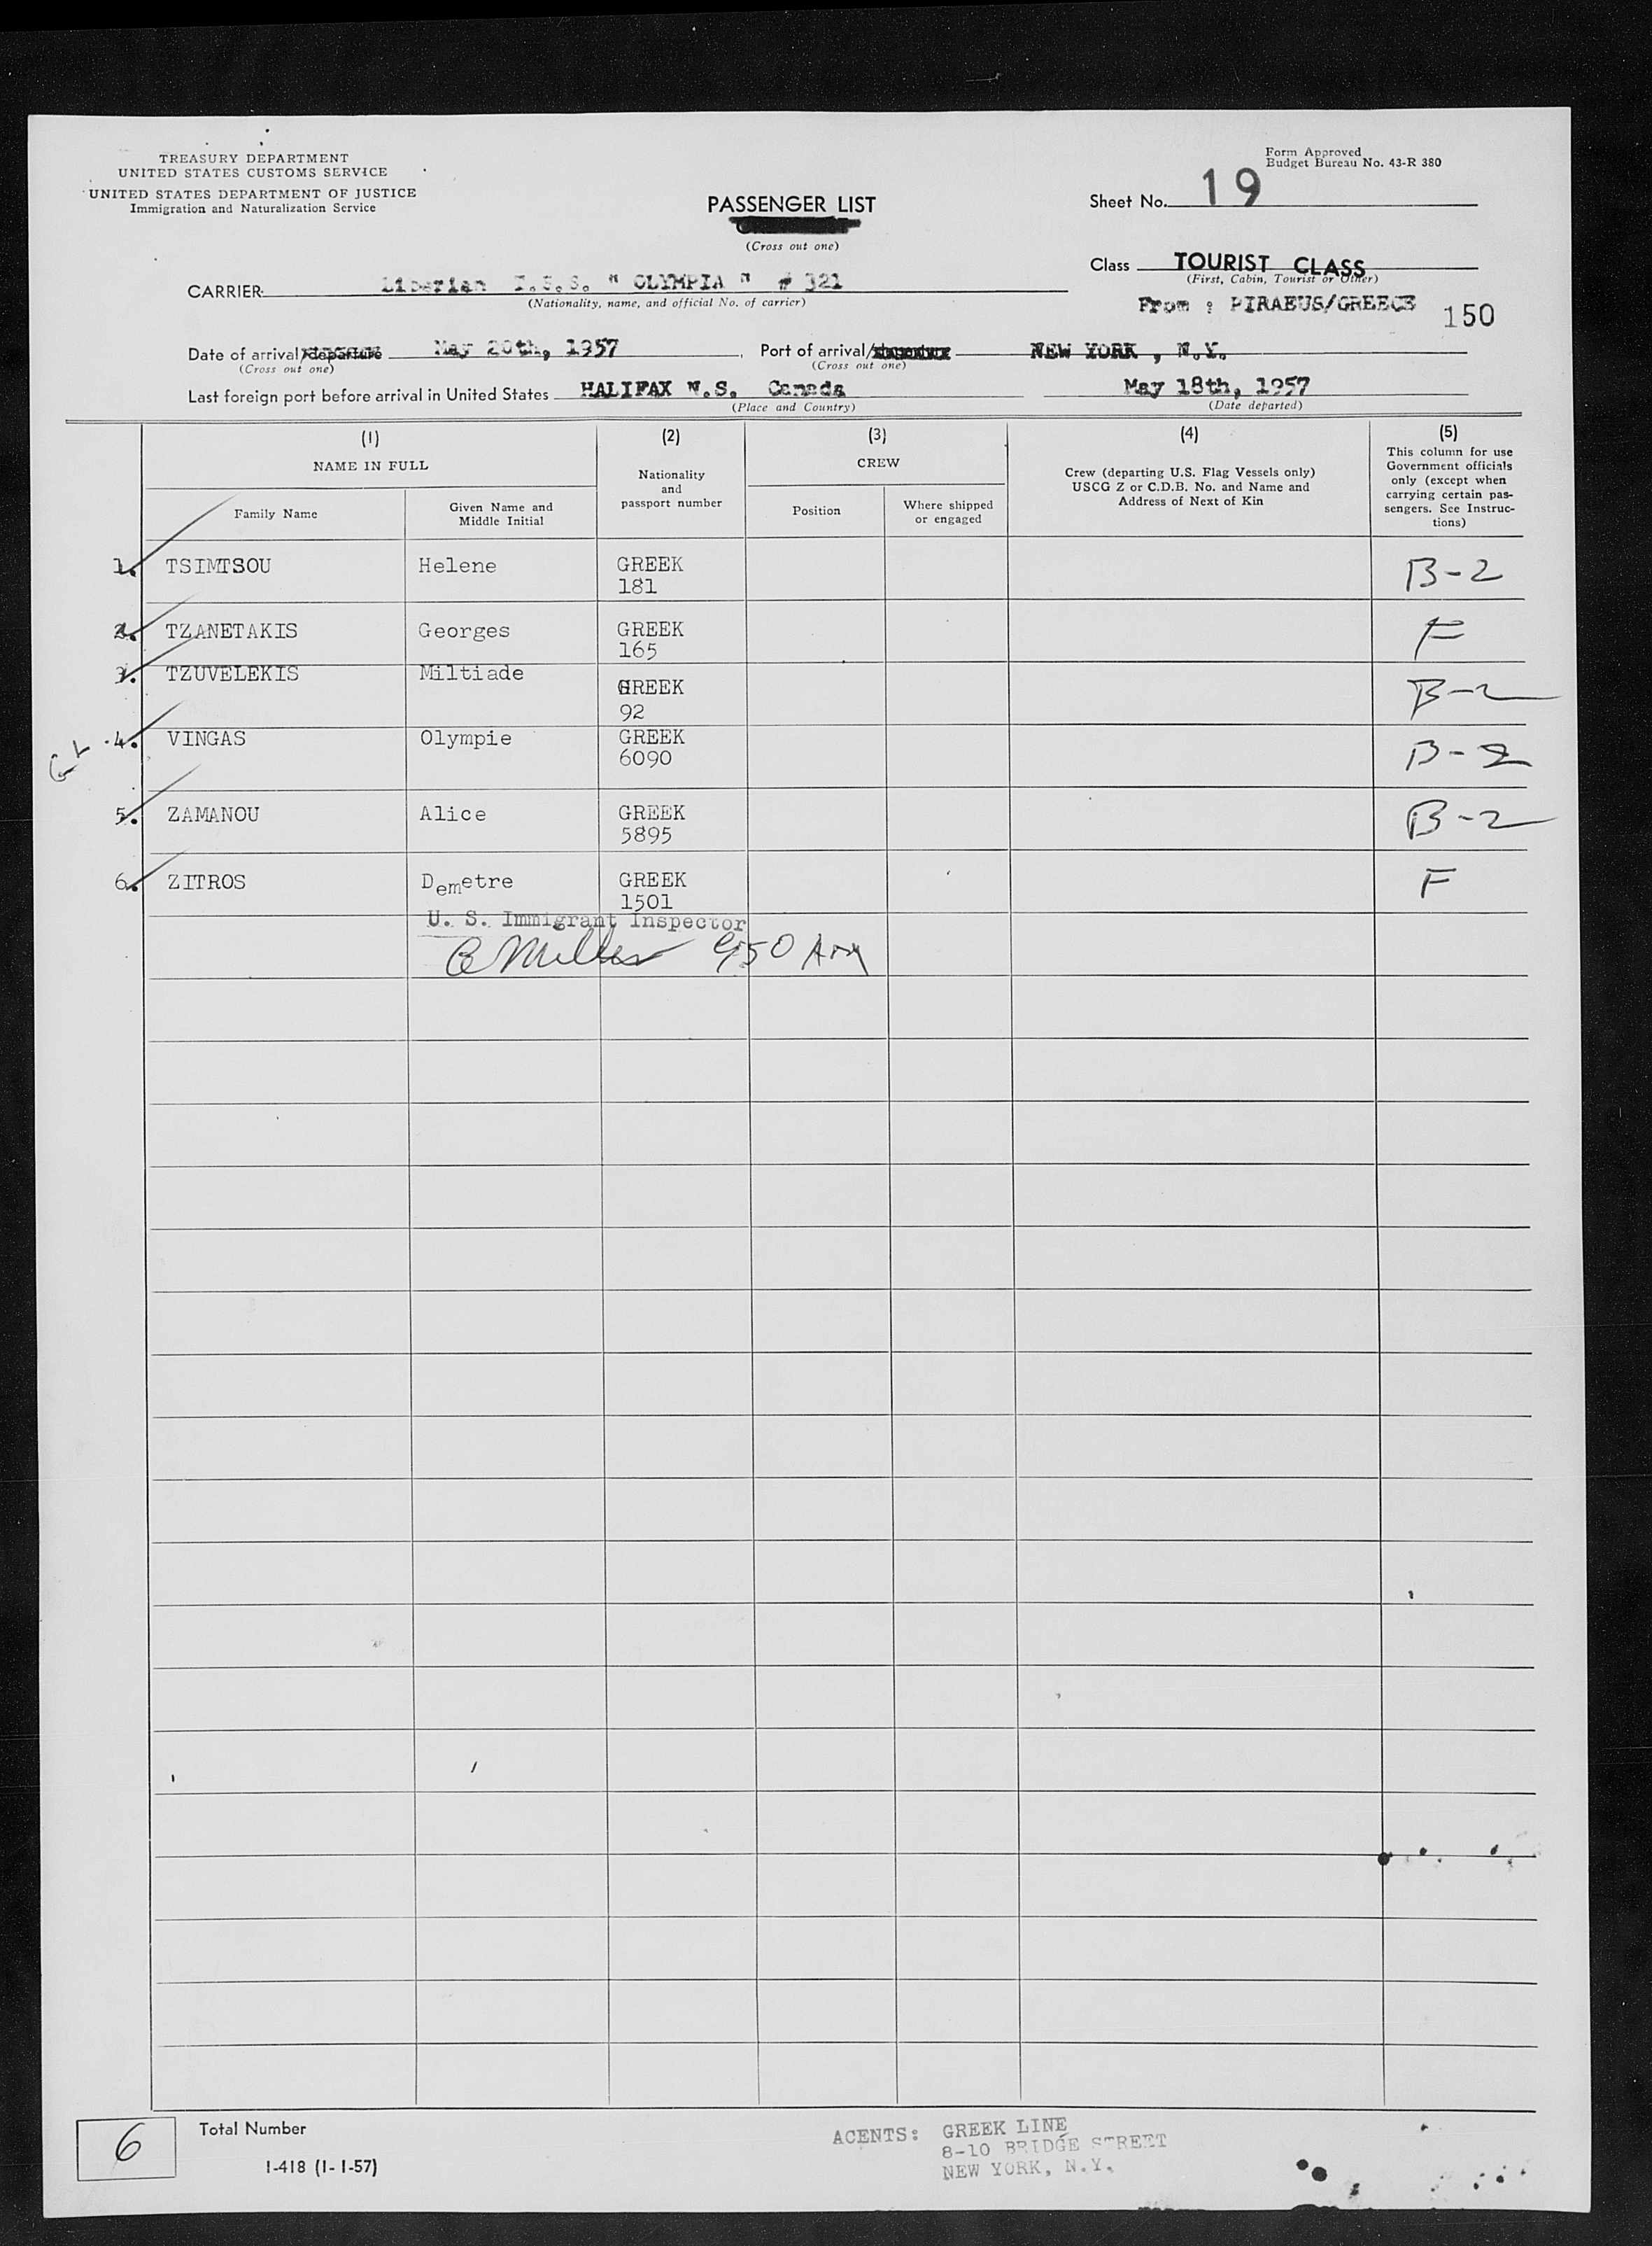 TREASURY DEPARTMENT
UNITED STATES CUSTOMS SERVICE
UNITED STATES DEPARTMENT OF JUSTICE
Immigration and Naturalization Service
Form Approved
Budget Bureau No. 43-R 380
PASSENGER LIST
(Cross out one)
Sheet No. 19
Class TOURIST CLASS
(First, Cabin, Tourist or Other)
CARRIER Liberian T.S.S. " OLYMPIA " # 321
(Nationality, name, and official No. of carrier)
From : PIRAEUS/GREECE 150
Date of arrival/departure May 20th, 1957 Port of arrival/ NEW YORK , N.Y.
(Cross out one) (Cross out one)
Last foreign port before arrival in United States HALIFAX N.S. Canada May 18th, 1957
(Place and Country) (Date departed)
(1) (2) (3) (4) (5)
NAME IN FULL
Family Name
Given Name and
Middle Initial
Nationality
and
passport number
CREW
Position
Where shipped
or engaged
Crew (departing U.S. Flag Vessels only)
USCG Z or C.D.B. No. and Name and
Address of Next of Kin
This column for use
Government officials
only (except when
carrying certain pas-
sengers. See Instruc-
tions)
1. TSIMTSOU Helene GREEK B-2
181
2. TZANETAKIS Georges GREEK F
165
3. TZUVELEKIS Miltiade
GREEK B-2
92
4. VINGAS Olympie GREEK B-2
6090
5. ZAMANOU Alice GREEK B-2
5895
6. ZITROS Demetre GREEK F
1501
U. S. Immigrant Inspector
Miller 950 AM
6 Total Number
I-418 (1-1-57)
ACENTS: GREEK LINE
8-10 BRIDGE STREET
NEW YORK, N.Y.